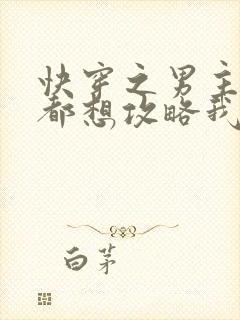 快穿之男主
都想攻略我
白茅